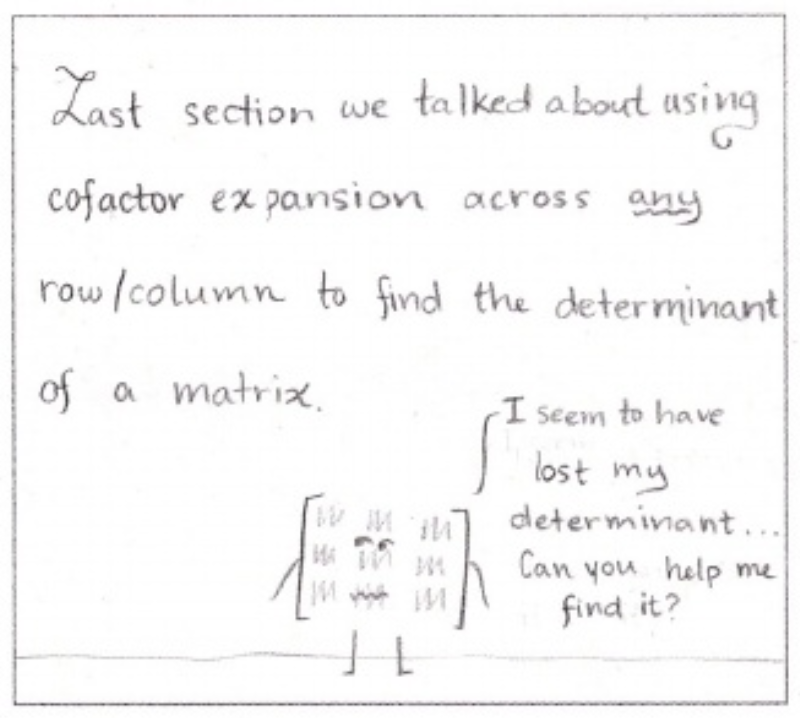 Last section we talked about using
cofactor expansion across any
row/column to find the determinant
of a matrix.
I seem to have
lost my
determinant...
Can you help me
find it?